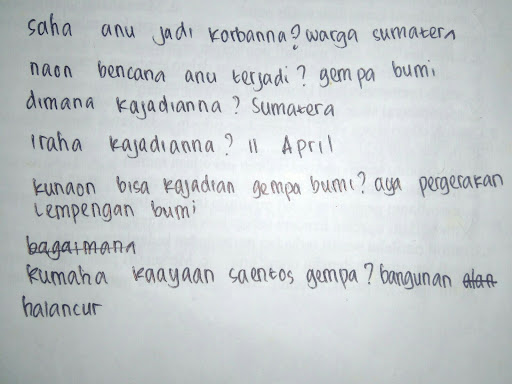 saha anu jadi korbanna? warga sumatera
naon bencana anu terjadi? gempa bumi
dimana kajadianna? Sumatera
iraha kajadianna? 11 April
kunaon bisa kajadian gempa bumi? aya pergerakan
lempengan bumi
bagaimana
kumaha kaayaan saentos gempa? bangunan alan
halancur